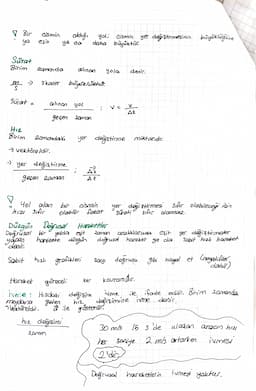 Bir cismin aldığı yol cismin yer değiştirmesinin büyüklüğüne
ya eşit ya da daha büyüktür.
Sürat
Birim zamanda alınan yola denir.
m/s → skaler büyüklüktür
Sürat = alınan yol / geçen zaman ; V = x / Δt
Hız
Birim zamandaki yer değiştirme miktarıdır.
→ vektöreldir.
→ yer değiştirme / geçen zaman ; Δx / Δt
Yol alan bir cismin yer değiştirmesi sıfır olabileceği için
hızı sıfır olabilir fakat sürati sıfır olamaz.
Düzgün Doğrusal Hareketler
Doğrusal bir yolda eşit zaman aralıklarında eşit yer değiştirmeler
yapan harekete düzgün doğrusal hareket ya da sabit hızlı hareket
denir.
Sabit hızlı grafikleri
Hareket göreceli bir kavramdır.
İvme: Hızdaki değişim ivme ile ifade edilir. Birim zamanda
meydana gelen hız değişimine ivme denir.
Vektöreldir. a ile gösterilir.
hız değişimi / zaman
30 m/s 16 s'de ulaşan aracın hızı
her saniye 2 m/s artarken ivmesi
2'dir.
Doğrusal hareketlerin ivmesi yoktur.